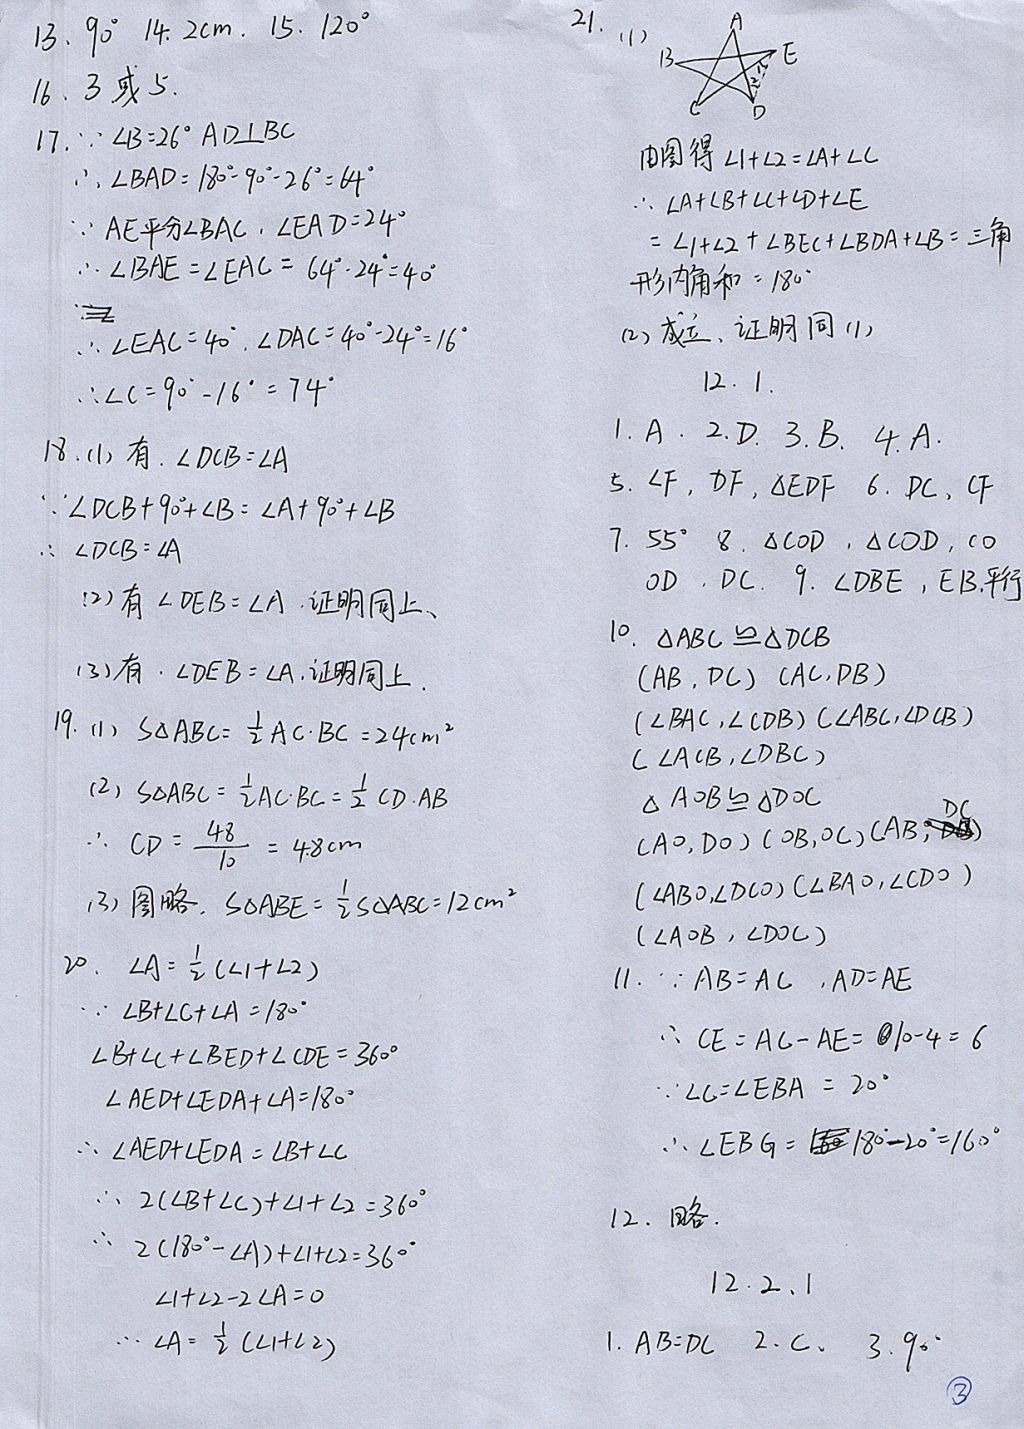 13. 90° 14. 2cm. 15. 120°
16. 3或5.
17. ∵ ∠B=26° AD⊥BC
∴ ∠BAD=180°-90°-26°=64°
∵ AE平分∠BAC, ∠EAD=24°
∴ ∠BAE=∠EAC= 64°-24°=40°
∴ ∠EAC=40°, ∠DAC=40°-24°=16°
∴ ∠C=90°-16°=74°
18. (1) 有. ∠DCB=∠A
∵ ∠DCB+90°+∠B=∠A+90°+∠B
∴ ∠DCB=∠A
(2) 有 ∠DEB=∠A. 证明同上、
(3) 有. ∠DEB=∠A. 证明同上.
19. (1) S△ABC=½AC·BC=24cm²
(2) S△ABC=½AC·BC=½CD·AB
∴ CD=48/10=4.8cm
(3) 图略. S△ABE=½S△ABC=12cm²
20. ∠A=½(∠1+∠2)
∵ ∠B+∠C+∠A=180°
∠B+∠C+∠BED+∠CDE=360°
∠AED+∠EDA+∠A=180°
∴ ∠AED+∠EDA=∠B+∠C
∴ 2(∠B+∠C)+∠1+∠2=360°
∴ 2(180°-∠A)+∠1+∠2=360°
∠1+∠2-2∠A=0
∴ ∠A=½(∠1+∠2)
21. (1)
A
B E
1
2
C D
由图得 ∠1+∠2=∠A+∠C
∴ ∠A+∠B+∠C+∠D+∠E
=∠1+∠2+∠BEC+∠BDA+∠B=三角
形内角和=180°
(2) 成立、证明同(1)
12.1.
1. A. 2. D. 3. B. 4. A.
5. ∠F, DF, △EDF 6. DC, CF
7. 55° 8. △COD, △COD, CO
OD, DC. 9. ∠DBE, EB.平行
10. △ABC≌△DCB
(AB, DC) (AC, DB)
(∠BAC, ∠CDB) (∠ABC, ∠DCB)
(∠ACB, ∠DBC)
△AOB≌△DOC
(AO, DO) (OB, OC) (AB, DC)
(∠ABO, ∠DCO) (∠BAO, ∠CDO)
(∠AOB, ∠DOC)
11. ∵ AB=AC, AD=AE
∴ CE=AC-AE=10-4=6
∵ ∠C=∠EBA=20°
∴ ∠EBG=180°-20°=160°
12. 略.
12.2.1
1. AB=DC 2. C. 3. 90°
③